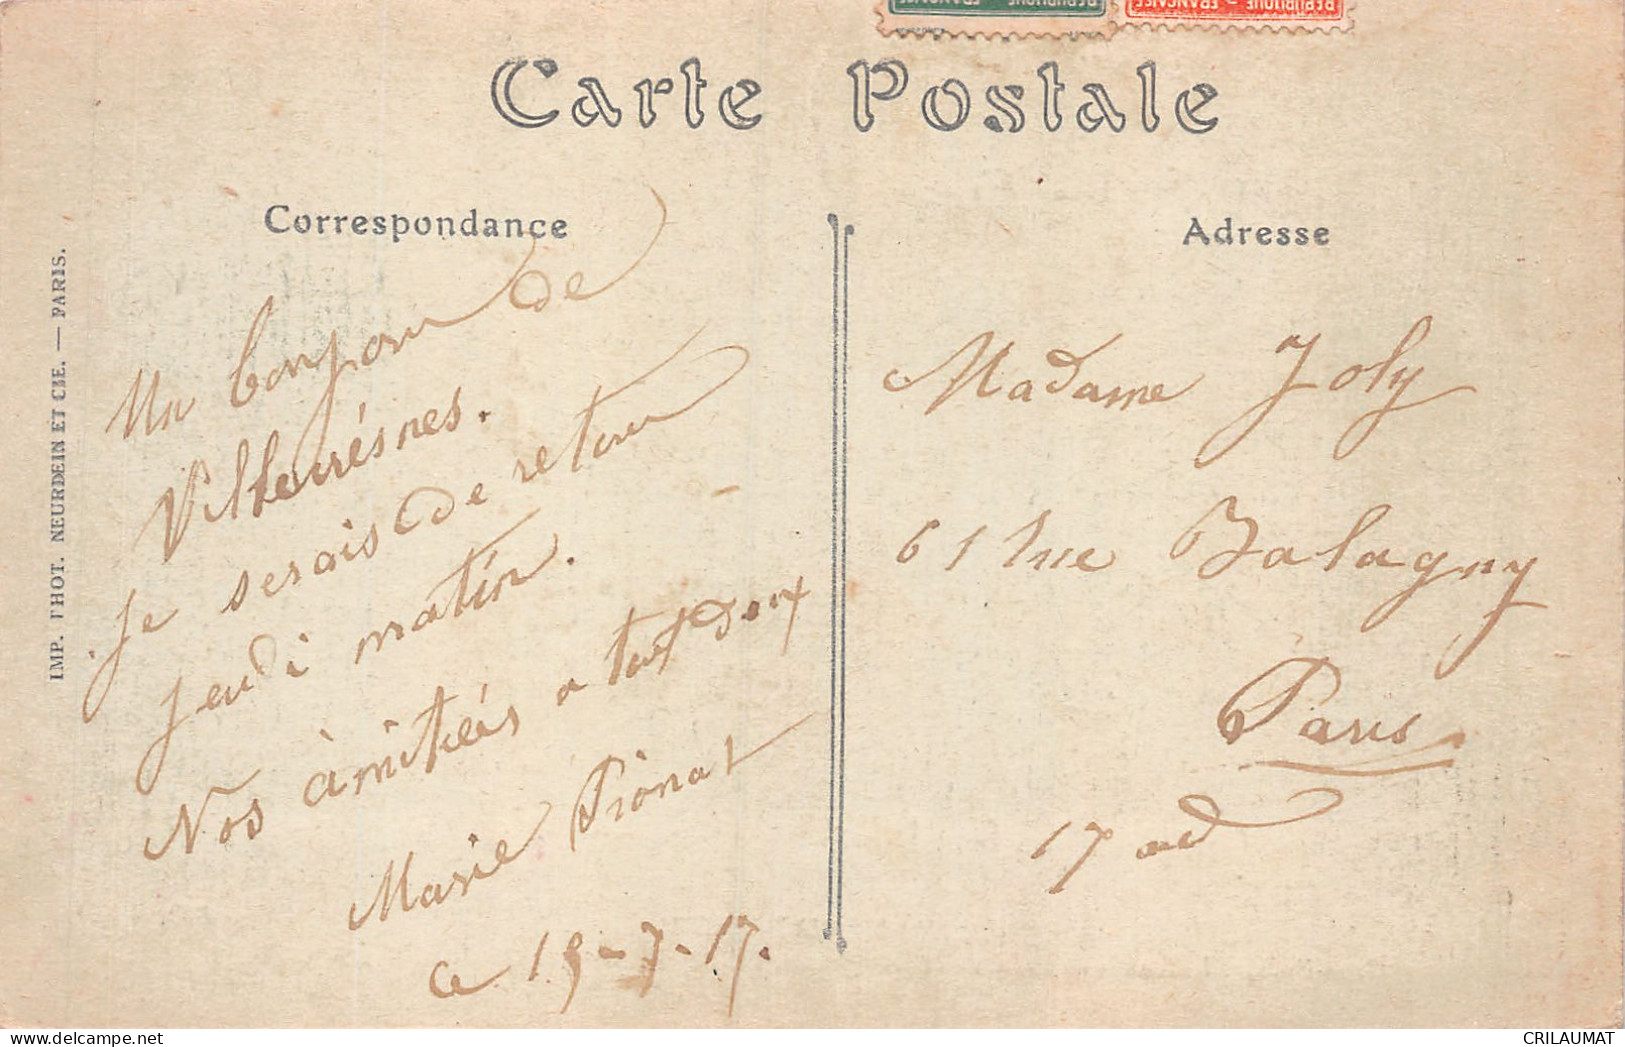 RÉPUBLIQUE FRANÇAISE
RÉPUBLIQUE FRANÇAISE
Carte Postale
Correspondance
Adresse
IMP. PHOT. NEURDEIN ET CIE. — PARIS.
Un bonjour de
Je serais de retour
jeudi matin.
Nos àmitiés a
Marie
ce 19-7-17.
Madame Joly
61 Rue Balagny
Paris
17
CRILAUMAT